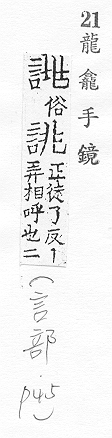 21龍龕手鏡
俗誂正徒了反丨
弄相呼也二
(言部 p45)